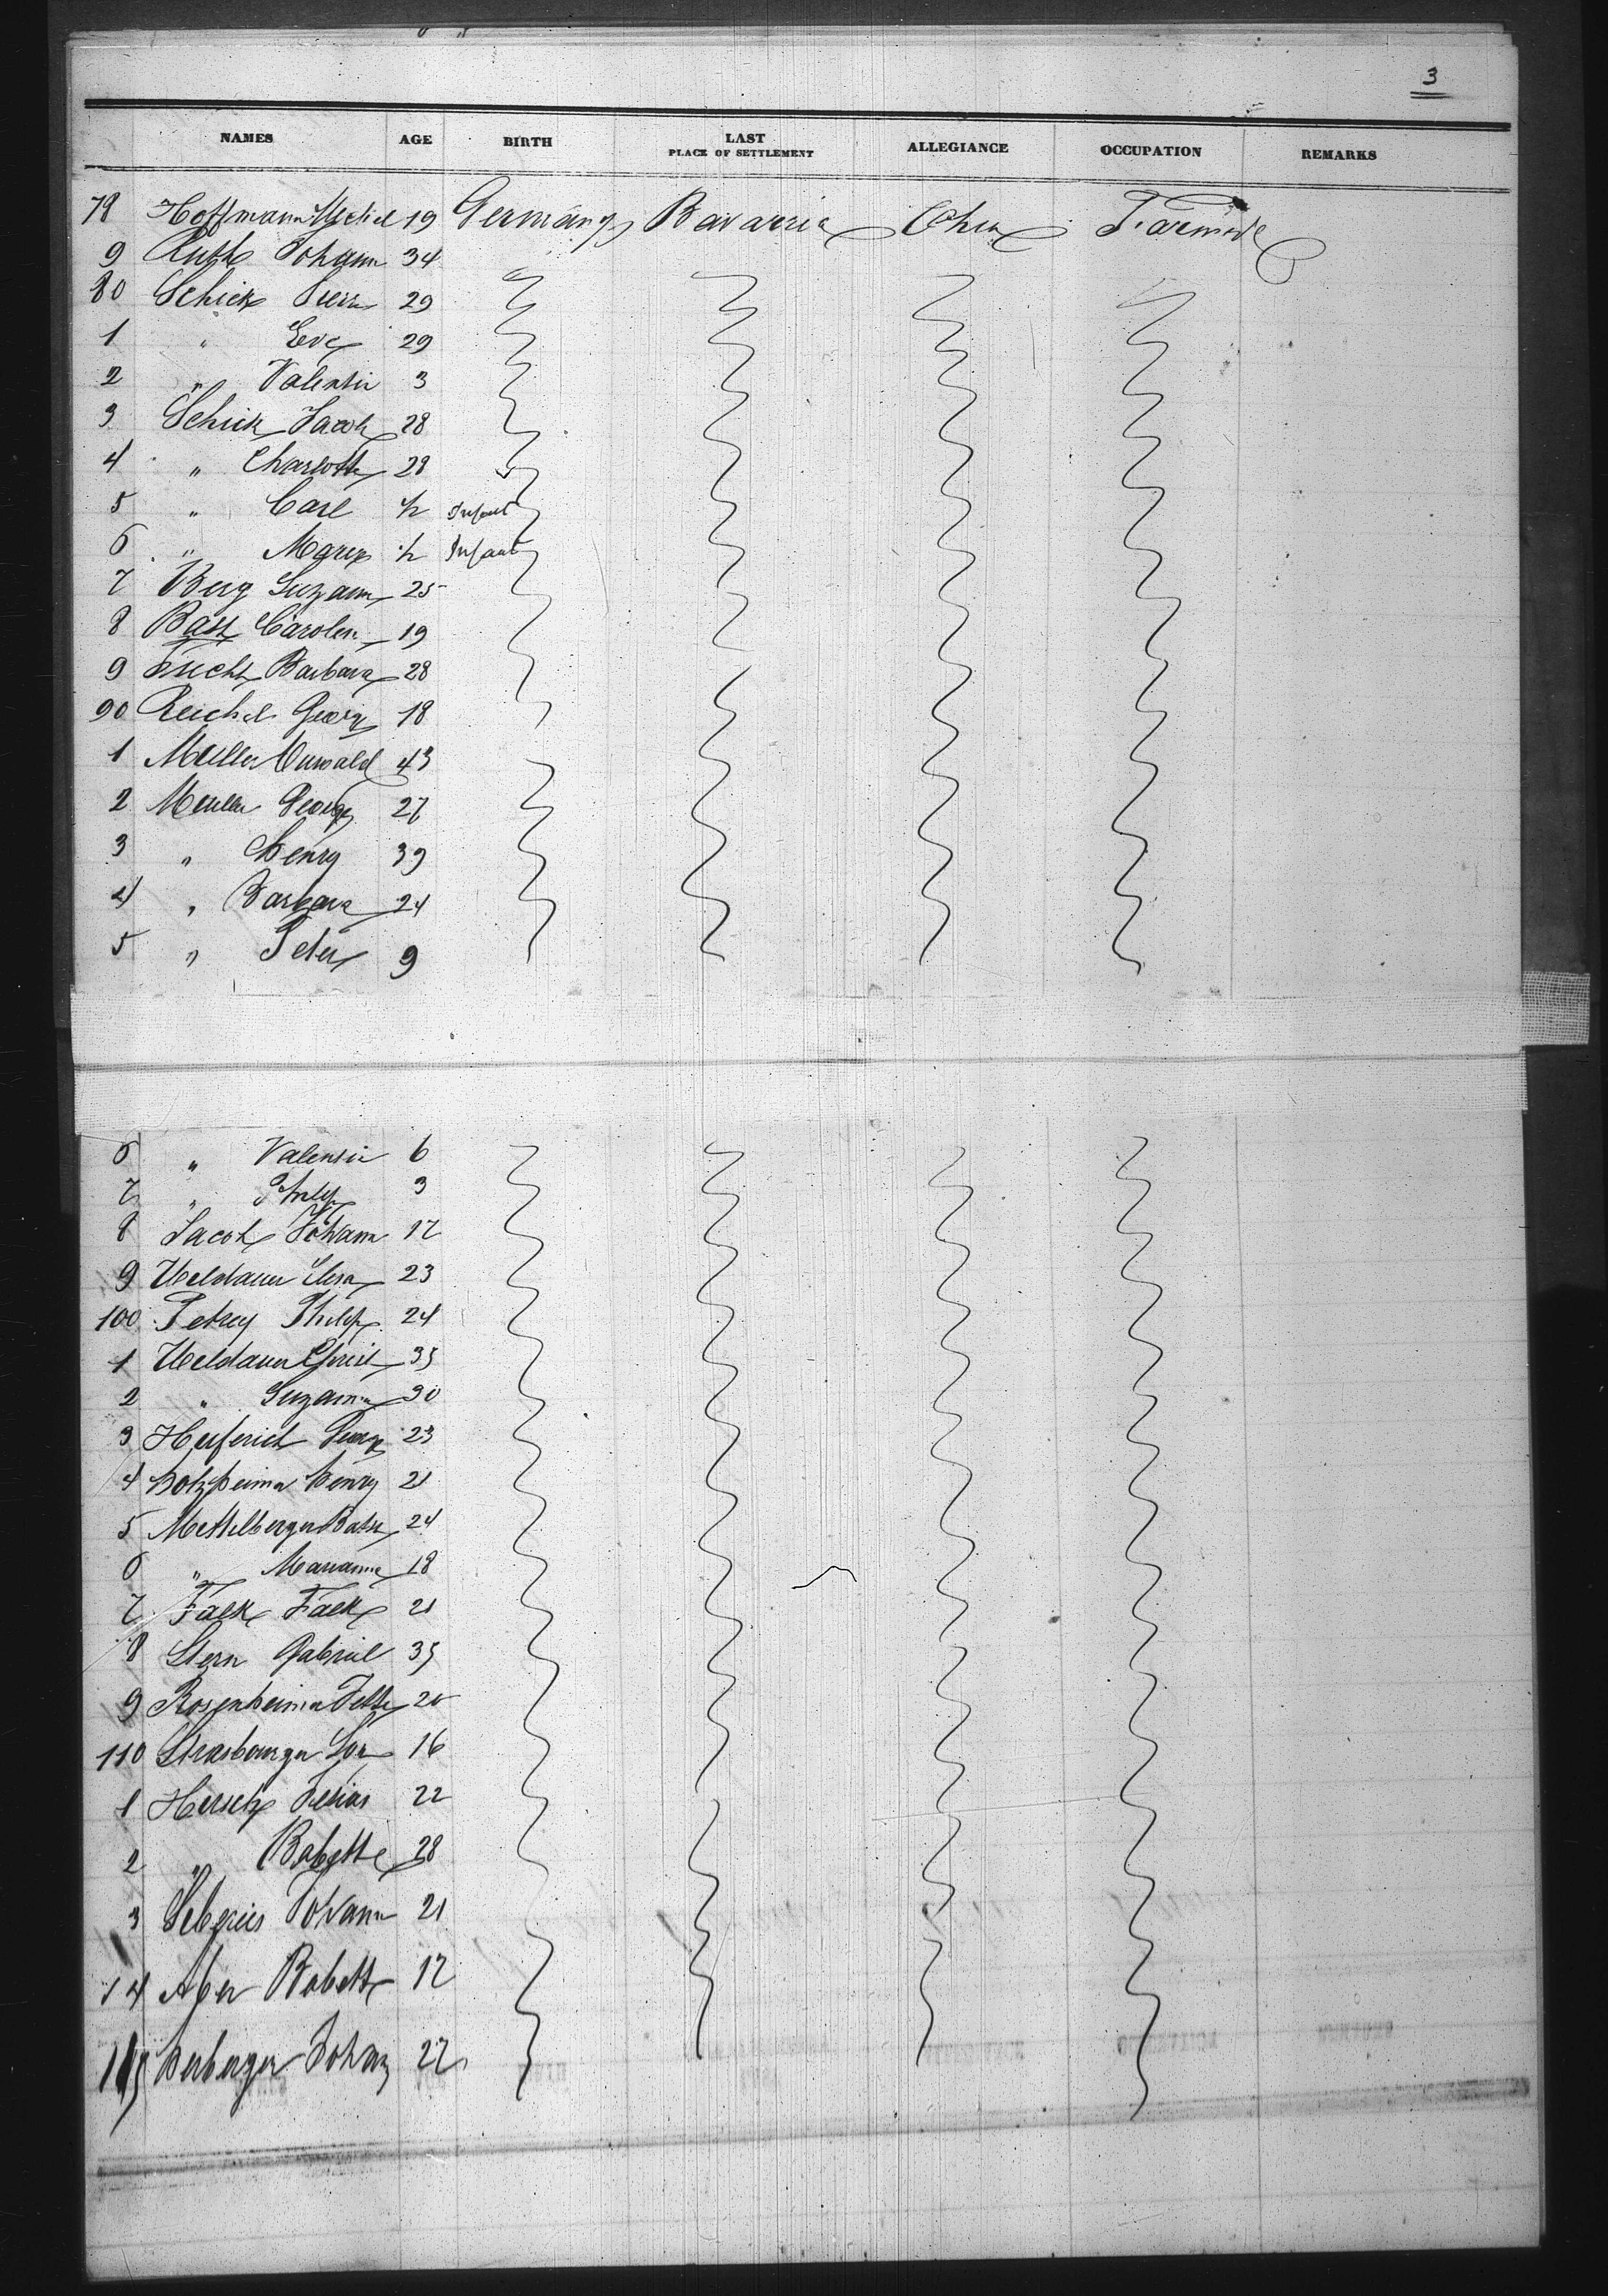 3
NAMES AGE BIRTH LAST PLACE OF SETTLEMENT ALLEGIANCE OCCUPATION REMARKS
78 Hoffmann Michel 19 Germany Bavaria Ohio
9 Johann 34
80 Schick 29
1 " Eve 29
2 " Valentin 3
3 Schick Jacob 28
4 " Charlotte 28
5 " Carl Infant
6 " Marie Infant
7 Berg Suzann 25
8 Bast Carolin 19
9 Barbara 28
90 Reichel George 18
1 Muller 43
2 George 27
3 " Henry 39
4 " Barbara 24
5 " Peter 9
6 " Valentin 6
7 " Philip 3
8 Jacob Johann 17
9 Weldauer 23
100 Petrey Philip 24
1 Weldauer 35
2 " Suzanna 30
3 George 23
4 Holzheimer Henry 21
5 24
6 " Marianne 18
7 Falk Falk 21
8 Stern Gabriel 35
9 Rosenheimer 20
110 Strasbourger 16
1 Hersch 22
2 " Babette 28
3 Johann 21
14 Babette 17
115 Herberger Johan 27